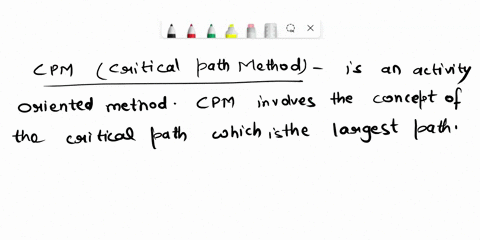 CPM (Critical path Method) - is an activity
oriented method. CPM involves the concept of
the critical path which is the largest path.